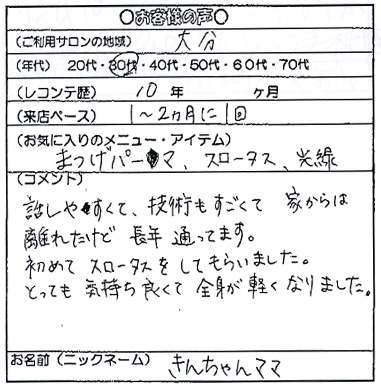 ○お客様の声○
(ご利用サロンの地域) 大分
(年代) 20代・30代・40代・50代・60代・70代
(レコンテ歴) 10 年 ヶ月
(来店ペース) 1~2ヵ月に1回
(お気に入りのメニュー・アイテム)
まつげパーマ、スロータス、光線
(コメント)
話しやすくて、技術もすごくて 家からは
離れたけど 長年 通ってます。
初めて スロータスを してもらいました。
とっても 気持ち良くて 全身が 軽く なりました。
お名前(ニックネーム) きんちゃんママ